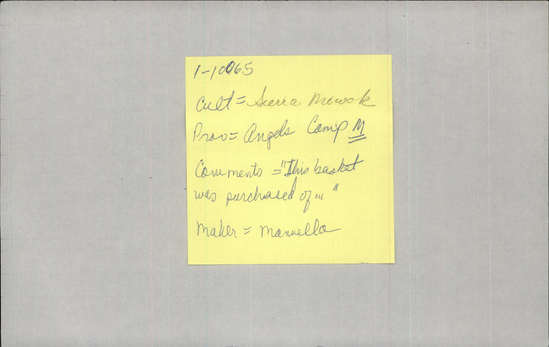 1-10065
Cult = Sierra Miwok
Prov = Angels Camp M
Comments = "This basket
was purchased of ... "
Maker = Manuella